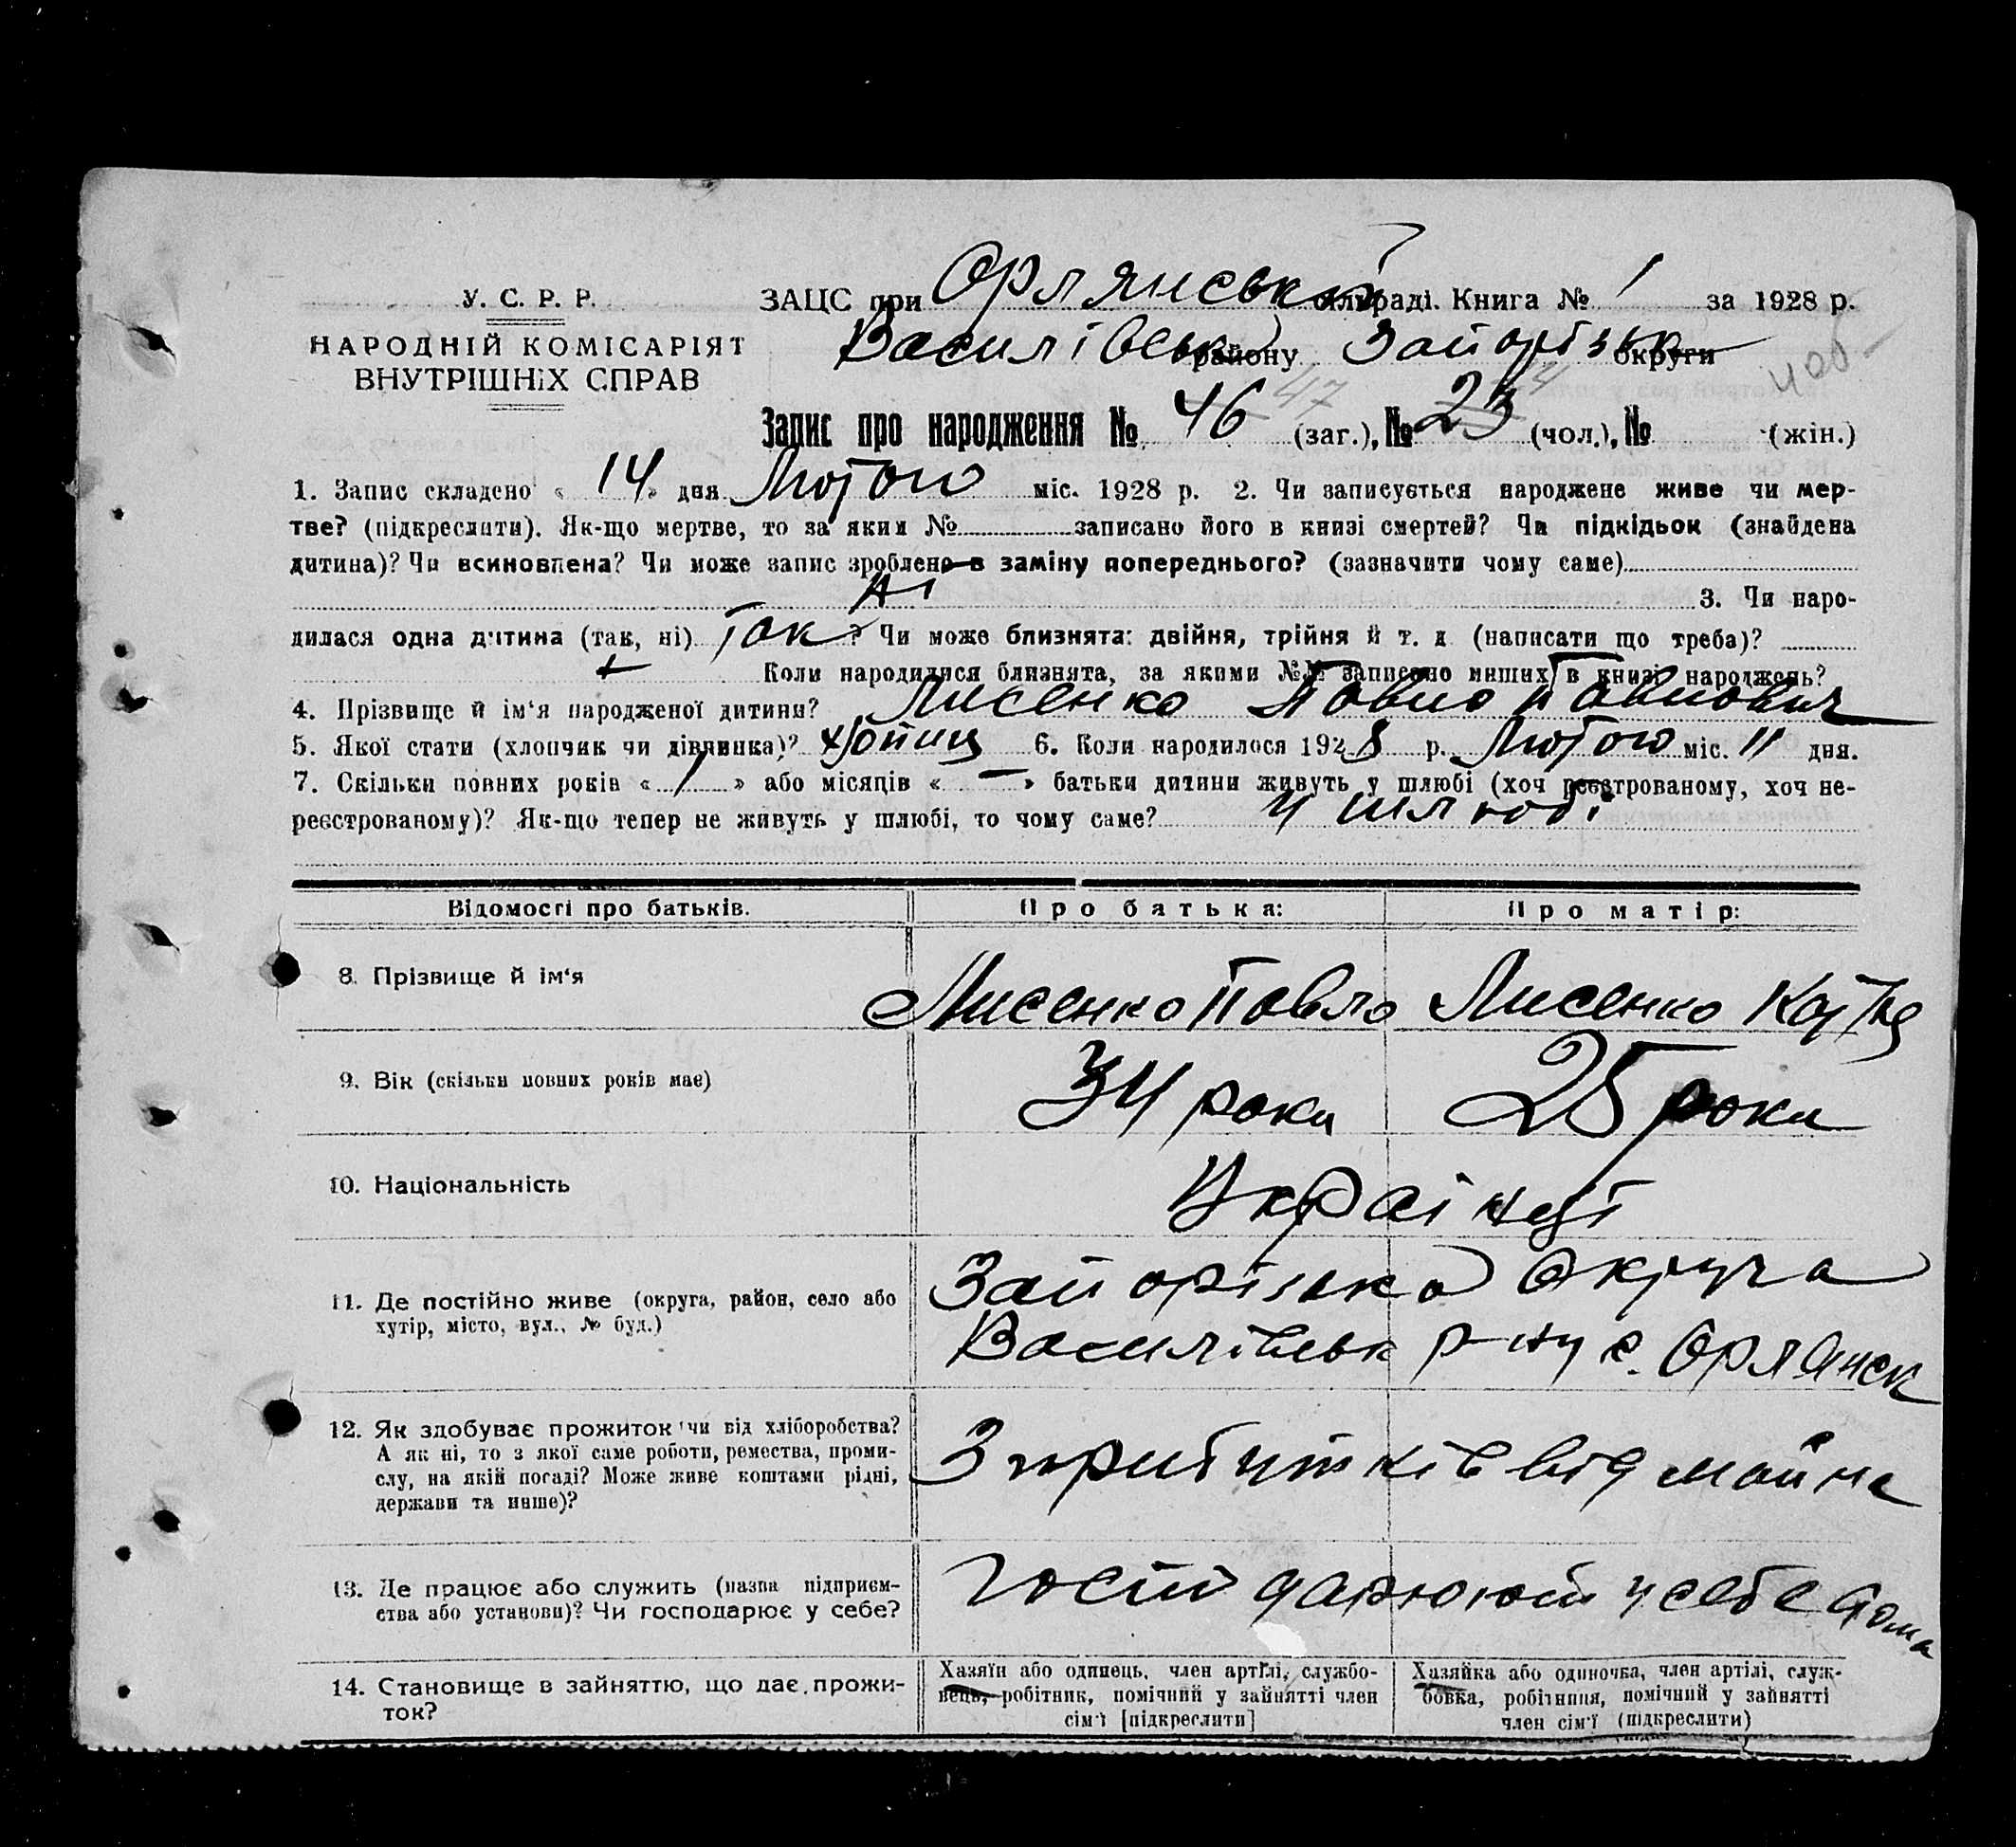 У. С. Р. Р.
НАРОДНІЙ КОМІСАРІЯТ
ВНУТРІШНІХ СПРАВ
ЗАЦС при Орлянській сільраді. Книга № 1 за 1928 р.
Василівськ району Запорізьк округи
Запис про народження № 46 47 (заг.), № 23 24 (чол.), № (жін.)
1. Запис складено « 14 » дня Лютого міс. 1928 р. 2. Чи записується народжене живе чи мер-
тве? (підкреслити). Як-що мертве, то за яким № записано його в книзі смертей? Чи підкідьок (знайдена
дитина)? Чи всиновлена? Чи може запис зроблено в заміну попереднього? (зазначити чому саме)
3. Чи наро-
дилася одна дитина (так, ні) так ? Чи може близнята: двійня, трійня й т. д. (написати що треба)?
Коли народилися близнята, за якими №№ записано инших в книзі народжень?
4. Прізвище й ім‘я народженої дитини? Лисенко Павло Павлович
5. Якої стати (хлопчик чи дівчинка)? 6. Коли народилося 1928 р. Лютого міс. 11 дня.
7. Скільки повних років « 1 » або місяців « — » батьки дитини живуть у шлюбі (хоч реєстрованому, хоч не-
реєстрованому)? Як-що тепер не живуть у шлюбі, то чому саме? у шлюбі
Відомості про батьків. Про батька: Про матір:
8. Прізвище й ім‘я Лисенко Павло Лисенко
9. Вік (скільки повних років має) 34 роки 25 роки
10. Національність Українці
11. Де постійно живе (округа, район, село або Запорізька Округа
хутір, місто, вул., № буд.) Василівськ р-ну с. Орлянськ
12. Як здобуває прожиток чи від хліборобства?
А як ні, то з якої саме роботи, ремества, проми-
слу, на якій посаді? Може живе коштами рідні, З прибутків від майна
держави та инше)?
13. Де працює або служить (назва підприєм-
ства або установи)? Чи господарює у себе? Госпдарюють у себе дома
14. Становище в зайняттю, що дає прожи-
ток?
Хазяїн або одинець, член артілі, службо-
вець, робітник, помічний у зайнятті член
сім‘ї [підкреслити]
Хазяйка або одиночка, член артілі, служ-
бовка, робітниця, помічний у зайнятті
член сім‘ї (підкреслити)